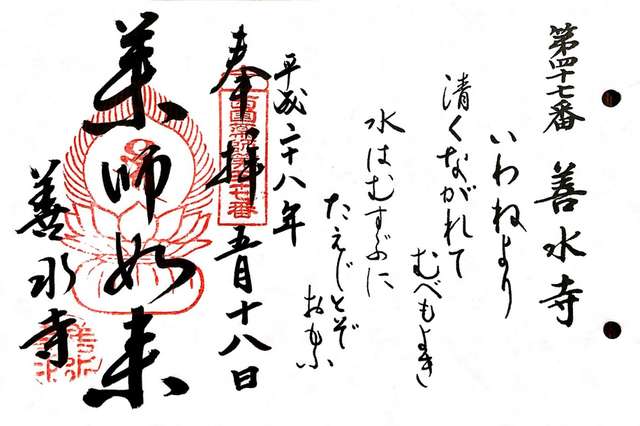 第四十七番 善水寺
いわねより
清くながれて
むべもよき
水はむすぶに
たえじとぞ
おもふ
平成二十八年
奉拝 五月十八日
薬師如来
善水寺